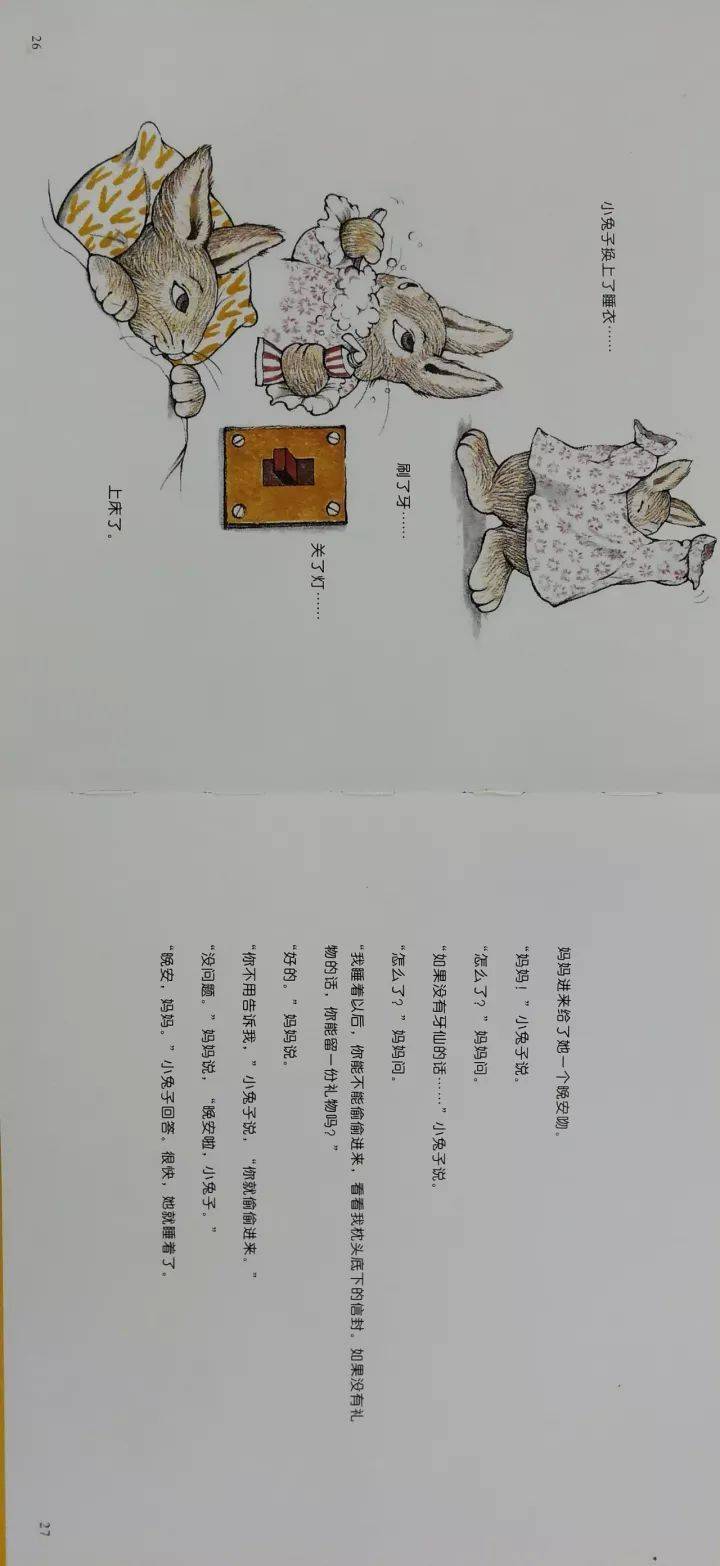 小兔子换上了睡衣……
刷了牙……
关了灯……
上床了。
26
妈妈进来给了她一个晚安吻。
“妈妈！”小兔子说。
“怎么了？”妈妈问。
“如果没有牙仙的话……”小兔子说。
“怎么了？”妈妈问。
“我睡着以后，你能不能偷偷进来，看看我枕头底下的信封。如果没有礼
物的话，你能留一份礼物吗？”
“好的。”妈妈说。
“你不用告诉我，”小兔子说，“你就偷偷进来。”
“没问题。”妈妈说，“晚安啦，小兔子。”
“晚安，妈妈。”小兔子回答。很快，她就睡着了。
27